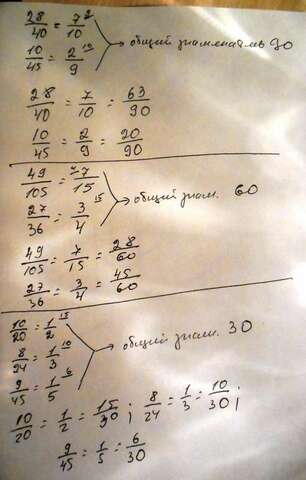 28/40 = 7/10 ⁹
10/45 = 2/9 ¹⁰ → общий знаменатель 90
28/40 = 7/10 = 63/90
10/45 = 2/9 = 20/90
49/105 = 7/15
27/36 = 3/4 ¹⁵ → общий знам. 60
49/105 = 7/15 = 28/60
27/36 = 3/4 = 45/60
10/20 = 1/2 ¹⁵
8/24 = 1/3 ¹⁰ → общий знам. 30
9/45 = 1/5 ⁶
10/20 = 1/2 = 15/30 ; 8/24 = 1/3 = 10/30 ;
9/45 = 1/5 = 6/30